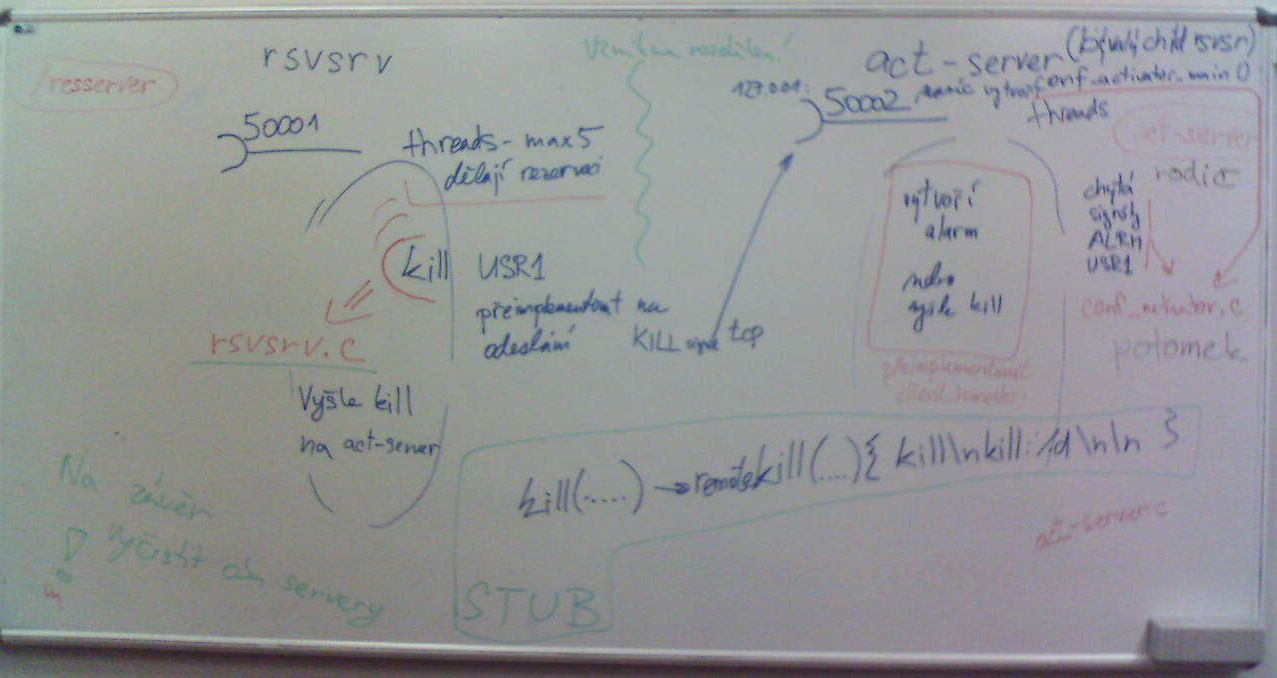 rsvsrv
/resserver
50001
threads - max 5
dělají rezervaci
kill
USR1
přeimplementovat na
odeslání KILL tcp
rsvsrv.c
Vyšle kill
na act-server
Na závěr
! Vyčistit oba servery
act-server (bývalý child rsvsrv)
127.0.0.1:
50002
conf_activator_main()
threads
act-server
rodič
vytvoří
alarm
nebo
vyšle kill
chytá
signály
ALRM
USR1
conf_activator.c
potomek
přeimplementovat
client_handler
kill(.....) → remotekill(....){ kill\nkill:%d\n\n }
act-server.c
STUB